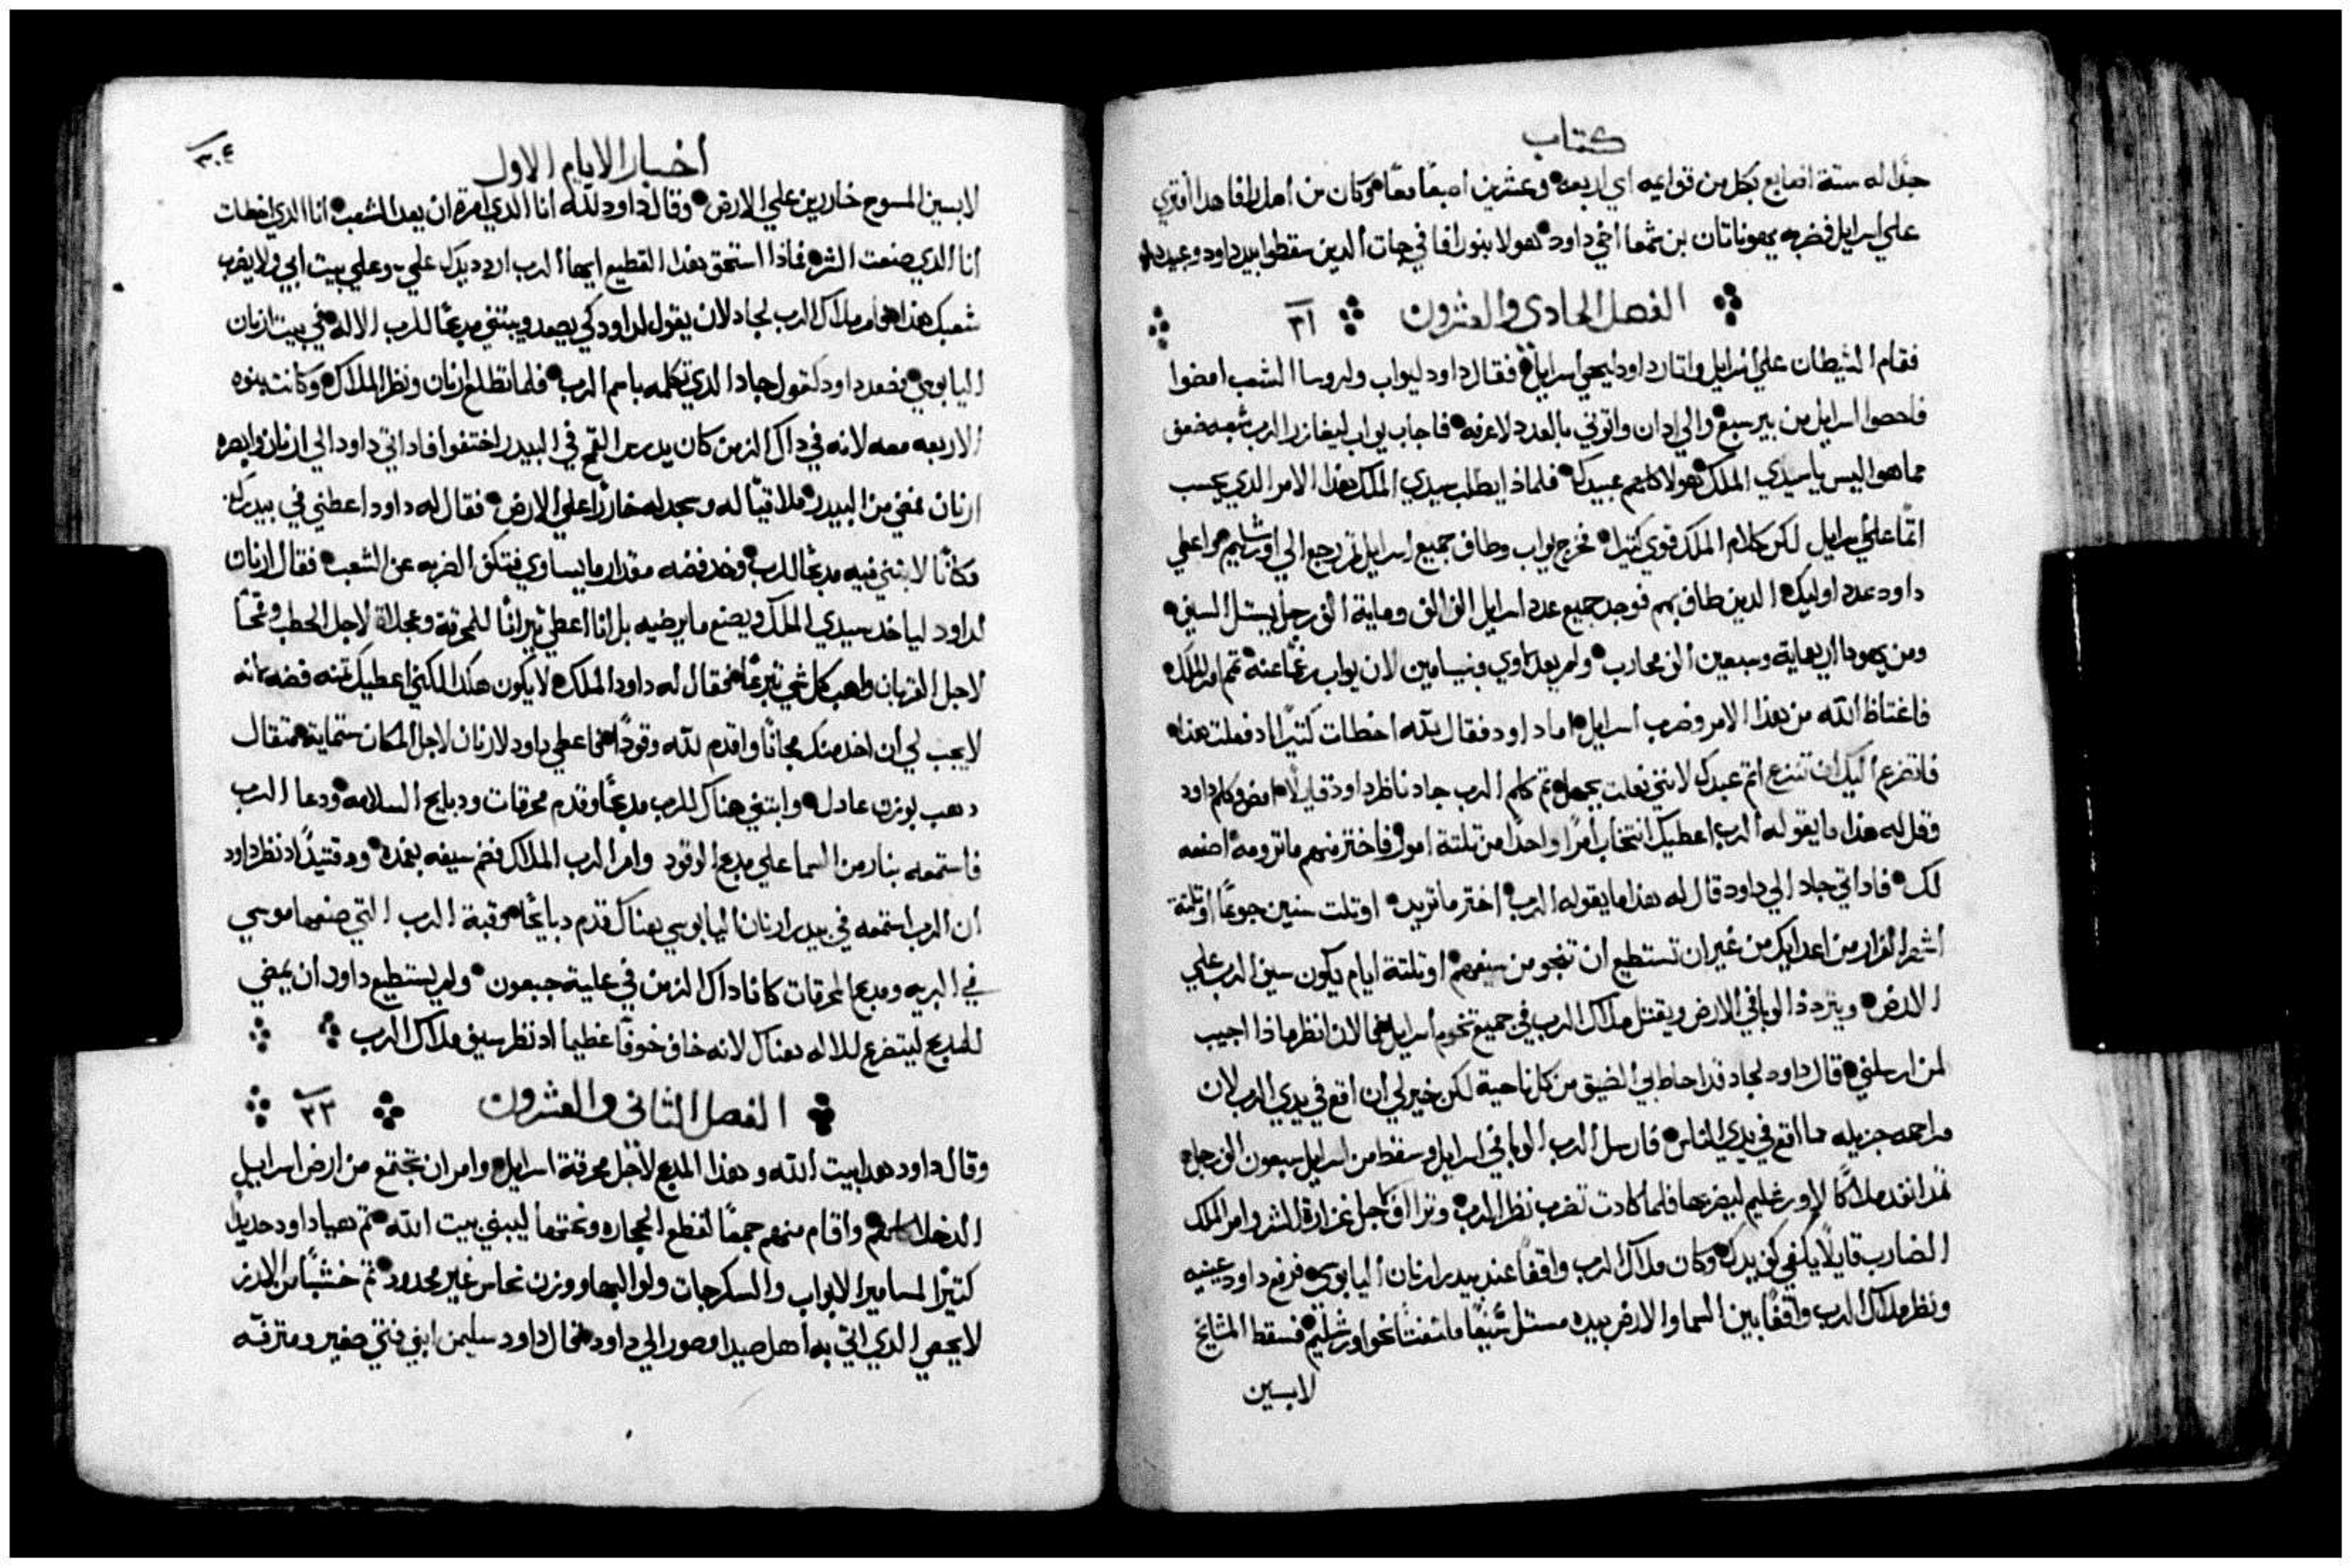 كتاب
جدًا له ستة اصابع بكل من قوايمه اي اربعة وعشرين اصبعًا معًا وكان من اهل رافا هدا افتري
علي اسرايل فضربه يهوناتان بن شمعا اخي داود هولا بنورافا في جات الدين سقطوا بيد داود وعبيده
الفصل الحادي والعشرون ٢١
فقام الشيطان علي اسرايل واتار داود ليحصي اسرايل فقال داود ليواب ولروسا الشعب امضوا
فاحصوا اسرايل من بير سبع والي دان واتوني بالعدد لاعرفه فاجاب يواب ليغازر الرب شعبه ضعف
مما هو اليس يا سيدي الملك هولا كلهم عبيدك فلماذا يطلب سيدي الملك هذا الامر الدي يحسب
اتمًا علي اسرايل لكن كلام الملك قوي كتيرًا فخرج يواب وطاف جميع اسرايل تم رجع الي اورشليم واعطي
داود عدد اوليك الدين طاف بهم فوجد جميع عدد اسرايل الف الف وماية الف رجل يستل السيف
ومن يهودا اربعماية وسبعين الف محارب ولم يعد لاوي وبنيامين لان يواب رغمًا عنه تمم امر الملك
فاغتاظ الله من هذا الامر وضرب اسرايل اما داود فقال لله اخطات كتيرًا اد فعلت هذا
فاتضرع اليك ان تنزع اتم عبدك لانني فعلت بجهل تم كلم الرب جاد ناظر داود قايلًا امض وكلم داود
وقل له هذا ما يقوله الرب اعطيك انتخاب امرًا واحدًا من تلتة امور فاختر منهم ما ترومه اصنعه
لك فاداتي جاد الي داود قال له هذا ما يقوله الرب اختر ما تريد اوتلت سنين جوعًا اوتلتة
اشهر الفرار من اعدايك من غير ان تستطيع ان تنجو من سيفهم اوتلتة ايام يكون سيف الرب علي
الارض ويتردد الوبا في الارض ويقتل ملاك الرب في جميع تخوم اسرايل فالان انظر ماذا اجيب
لمن ارسلني قال داود لجاد قد احاط بي الضيق من كل ناحية لكن خير لي ان اقع في يدي الرب لان
مراحمه جزيله مما اقع في يدي الناس فارسل الرب الوبا في اسرايل وسقط من اسرايل سبعون الف رجل
تم انفد ملاكًا لاورشليم ليضربها فلما كادت تضرب نظر الرب وتراف لاجل غزارة الشر وامر الملك
الضارب قايلًا يكفي كف يدك وكان ملاك الرب واقفًا عند بيدر ارنان اليابوسي فرفع داود عينيه
ونظر ملاك الرب واقفًا بين السما والارض بيده مستل سيفًا ملتفتًا نحو اورشليم فسقط المشايخ
لابسين
اخبار الايام الاول ٣٠٤
لابسين المسوح خارين علي الارض وقال داود لله انا الدي امرت ان يعد الشعب انا الدي اخطات
انا الدي صنعت الشر فماذا استحق هذا القطيع ايها الرب اردد يدك علي وعلي بيت ابي ولا يضرب
شعبك هذا هو امر ملاك الرب لجاد لان يقول لداود كي يصعد ويبتني مدبحًا للرب الاله في بيت ارنان
اليابوسي فصعد داود كقول جاد الدي تكلمه باسم الرب فلما تطلع ارنان ونظر الملاك وكانت بنوه
الاربعه معه لانه في داك الزمن كان يدرس القمح في البيدر اختفوا فاداتي داود الي ارنان وابصره
ارنان فمضي من البيدر ملاقيًا له وسجد له خارًا علي الارض فقال له داود اعطني في بيدرك
مكانًا لابتني فيه مدبحًا للرب وخد فضه مقدار ما يساوي فتكف الضربه عن الشعب فقال ارنان
لداود لياخد سيدي الملك ويصنع ما يرضيه بل انا اعطي تيرانًا للمحرقة وعجلاة لاجل الحطب وقمحًا
لاجل القربان واهب كل شي تبرعًا فقال له داود الملك لا يكون هكدا لكني اعطيك تمنه فضه لانه
لا يجب لي ان اخد منك مجانًا واقدم لله وقودًا فاعطي داود لارنان لاجل المكان ستماية متقال
دهب بوزن عادل وابتني هناك للرب مدبحًا وقدم محرقات ودبايح السلامه ودعا الرب
فاستمعه بنار من السما علي مدبح الوقود وامر الرب الملاك فضم سيفه بغمده ووقتيدًا اد نظر داود
ان الرب استمعه في بيدر ارنان اليابوسي هناك قدم دبايحًا وقبة الرب التي صنعها موسي
في البريه ومدبح المحرقات كانا داك الزمن في علية جبعون ولم يستطيع داود ان يمضي
للمدبح ليتضرع للاله هناك لانه خاف خوفًا عظيمًا اد نظر سيف ملاك الرب
الفصل الثاني والعشرون ٢٢
وقال داود هدا بيت الله وهذا المدبح لاجل محرقة اسرايل وامر ان تجتمع من ارض اسراييل
الدخلا كلهم واقام منهم جمعًا لقطع الحجاره ونحتها ليبني بيت الله تم هيا داود حديدًا
كتيرًا لمسامير الابواب والسكرجات ولوالبها ووزن نحاس غير محدود تم خشبًا من الارز
لا يحصي الدي اتي به اهل صيدا وصور الي داود فقال داود سليمن ابني فتي صغير ومترفه